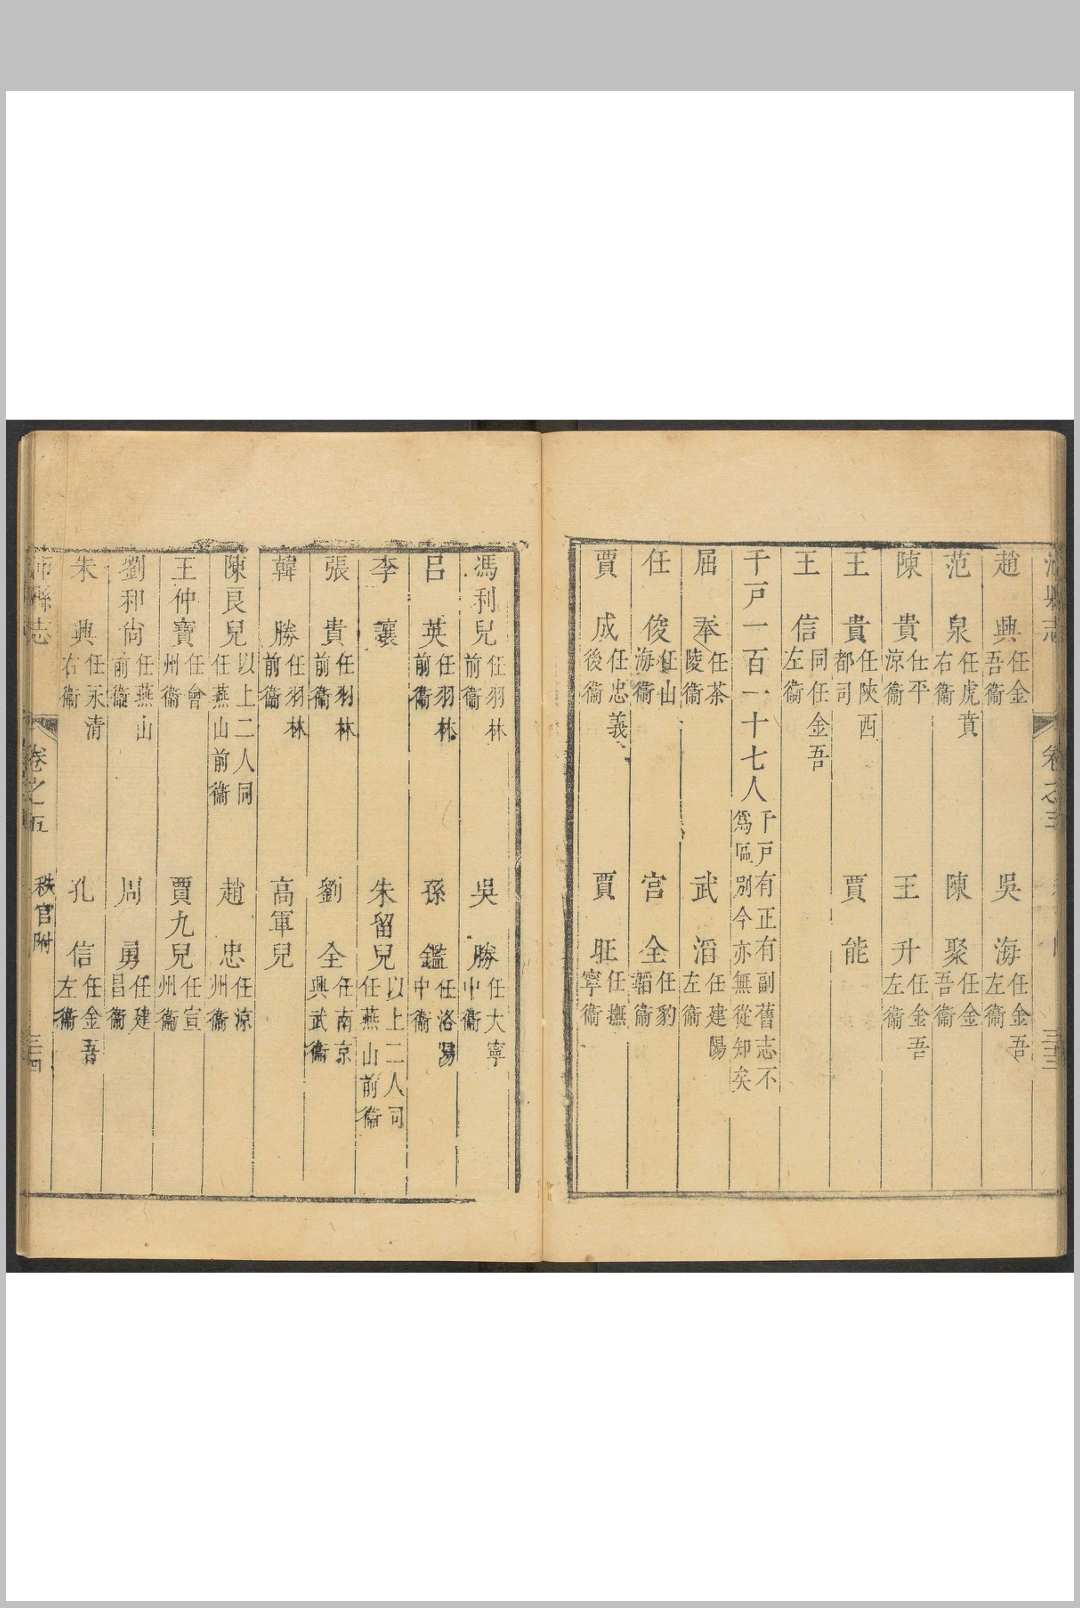 沛縣志 卷之五 三十三
趙興任金吾衞 吳海任金吾左衞
范泉任虎賁右衞 陳聚任金吾衞
陳貴任平涼衞 王升任金吾左衞
王貴任陝西都司 賈能
王信同任金吾左衞
千戸一百一十七人千戸有正有副舊志不爲區別今亦無從知矣
屈奉任茶陵衞 武滔任建陽左衞
任俊任山海衞 宫全任豹韜衞
賈成任忠義後衞 賈旺任撫寧衞
馮利兒任羽林前衞 吳勝任大寧中衞
吕英任羽林前衞 孫鑑任洛陽中衞
李讓 朱留兒以上二人同任燕山前衞
張貴任羽林前衞 劉全任南京興武衞
韓勝任羽林前衞 高軍兒
陳艮兒以上二人同任燕山前衞 趙忠任涼州衞
王仲寶任會州衞 賈九兒任宣州衞
劉和尙任燕山前衞 周勇任建昌衞
朱興任永清右衞 孔信任金吾左衞
沛縣志 卷之五 秩官附 三十四